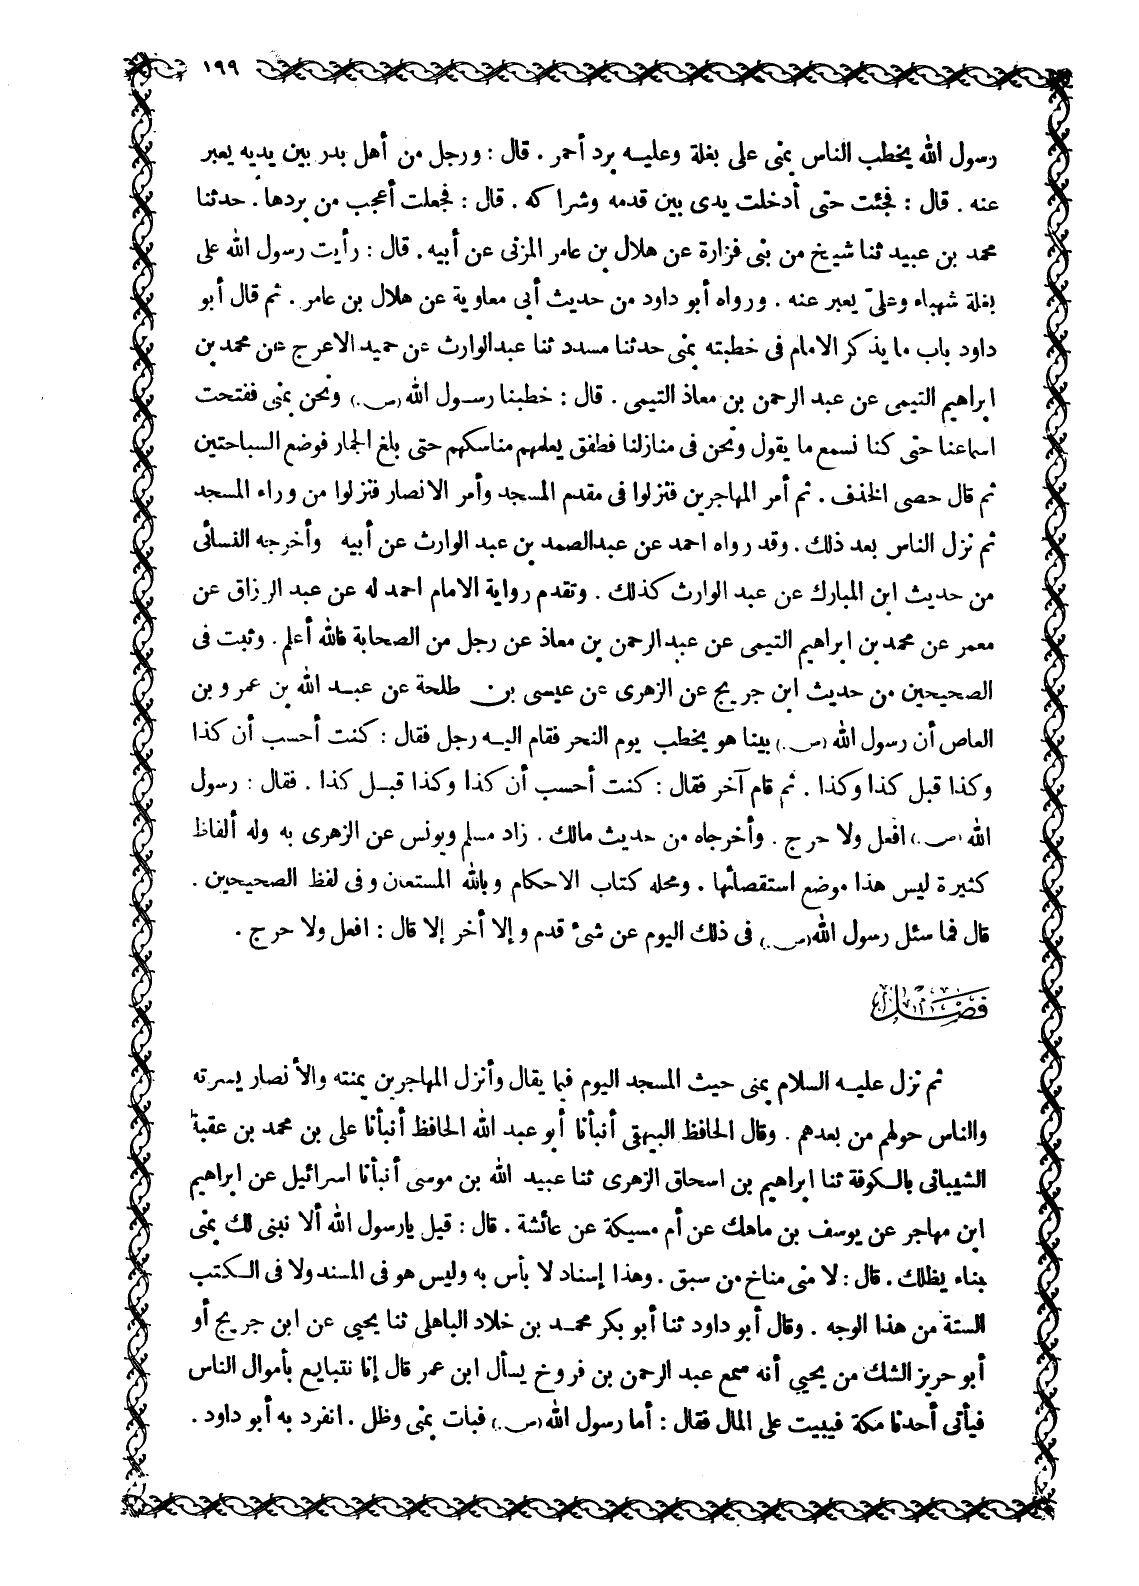 ١٩٩
رسول الله يخطب الناس بمنى على بغلة وعليه برد أحمر . قال : ورجل من أهل بدر بين يديه يعبر
عنه . قال : فجئت حتى أدخلت يدى بين قدمه وشراكه . قال : فجعلت أعجب من بردها . حدثنا
محمد بن عبيد ثنا شيخ من بنى فزارة عن هلال بن عامر المزنى عن أبيه . قال : رأيت رسول الله على
بغلة شهباء وعلىّ يعبر عنه . ورواه أبو داود من حديث أبى معاوية عن هلال بن عامر . ثم قال أبو
داود باب ما يذكر الامام فى خطبته بمنى حدثنا مسدد ثنا عبدالوارث عن حميد الاعرج عن محمد بن
ابراهيم التيمى عن عبد الرحمن بن معاذ التيمى . قال : خطبنا رسول الله (ص.) ونحن بمنى ففتحت
اسماعنا حتى كنا نسمع ما يقول ونحن فى منازلنا فطفق يعلمهم مناسكهم حتى بلغ الجمار فوضع السباحتين
ثم قال حصى الخذف . ثم أمر المهاجرين فنزلوا فى مقدم المسجد وأمر الانصار فنزلوا من وراء المسجد
ثم نزل الناس بعد ذلك . وقد رواه احمد عن عبدالصمد بن عبد الوارث عن أبيه وأخرجه النسائى
من حديث ابن المبارك عن عبد الوارث كذلك . وتقدم رواية الامام احمد له عن عبد الرزاق عن
معمر عن محمد بن ابراهيم التيمى عن عبدالرحمن بن معاذ عن رجل من الصحابة فالله أعلم . وثبت فى
الصحيحين من حديث ابن جريج عن الزهرى عن عيسى بن طلحة عن عبد الله بن عمرو بن
العاص أن رسول الله (ص.) بينا هو يخطب يوم النحر فقام اليه رجل فقال : كنت أحسب أن كذا
وكذا قبل كذا وكذا . ثم قام آخر فقال : كنت أحسب أن كذا وكذا قبل كذا . فقال : رسول
الله (ص.) افعل ولا حرج . وأخرجاه من حديث مالك . زاد مسلم ويونس عن الزهرى به وله ألفاظ
كثيرة ليس هذا موضع استقصائها . ومحله كتاب الاحكام وبالله المستعان وفى لفظ الصحيحين .
قال فما سئل رسول الله (ص.) فى ذلك اليوم عن شىء قدم وإلا أخر إلا قال : افعل ولا حرج .
فصل
ثم نزل عليه السلام بمنى حيث المسجد اليوم فيما يقال وأنزل المهاجرين يمنته والأنصار يسرته
والناس حولهم من بعدهم . وقال الحافظ البيهقى أنبأنا أبو عبد الله الحافظ أنبأنا على بن محمد بن عقبة
الشيبانى بالكوفة ثنا ابراهيم بن اسحاق الزهرى ثنا عبيد الله بن موسى أنبأنا اسرائيل عن ابراهيم
ابن مهاجر عن يوسف بن ماهك عن أم مسيكة عن عائشة . قال : قيل يارسول الله ألا نبنى لك بمنى
بناء يظلك . قال : لا منى مناخ من سبق . وهذا إسناد لا بأس به وليس هو فى المسند ولا فى الكتب
الستة من هذا الوجه . وقال أبو داود ثنا أبو بكر محمد بن خلاد الباهلى ثنا يحيى عن ابن جريج أو
أبو حريز الشك من يحيي أنه سمع عبد الرحمن بن فروخ يسأل ابن عمر قال إنا نتبايع بأموال الناس
فيأتى أحدنا مكة فيبيت على المال فقال : أما رسول الله (ص.) فبات بمنى وظل . انفرد به أبو داود .